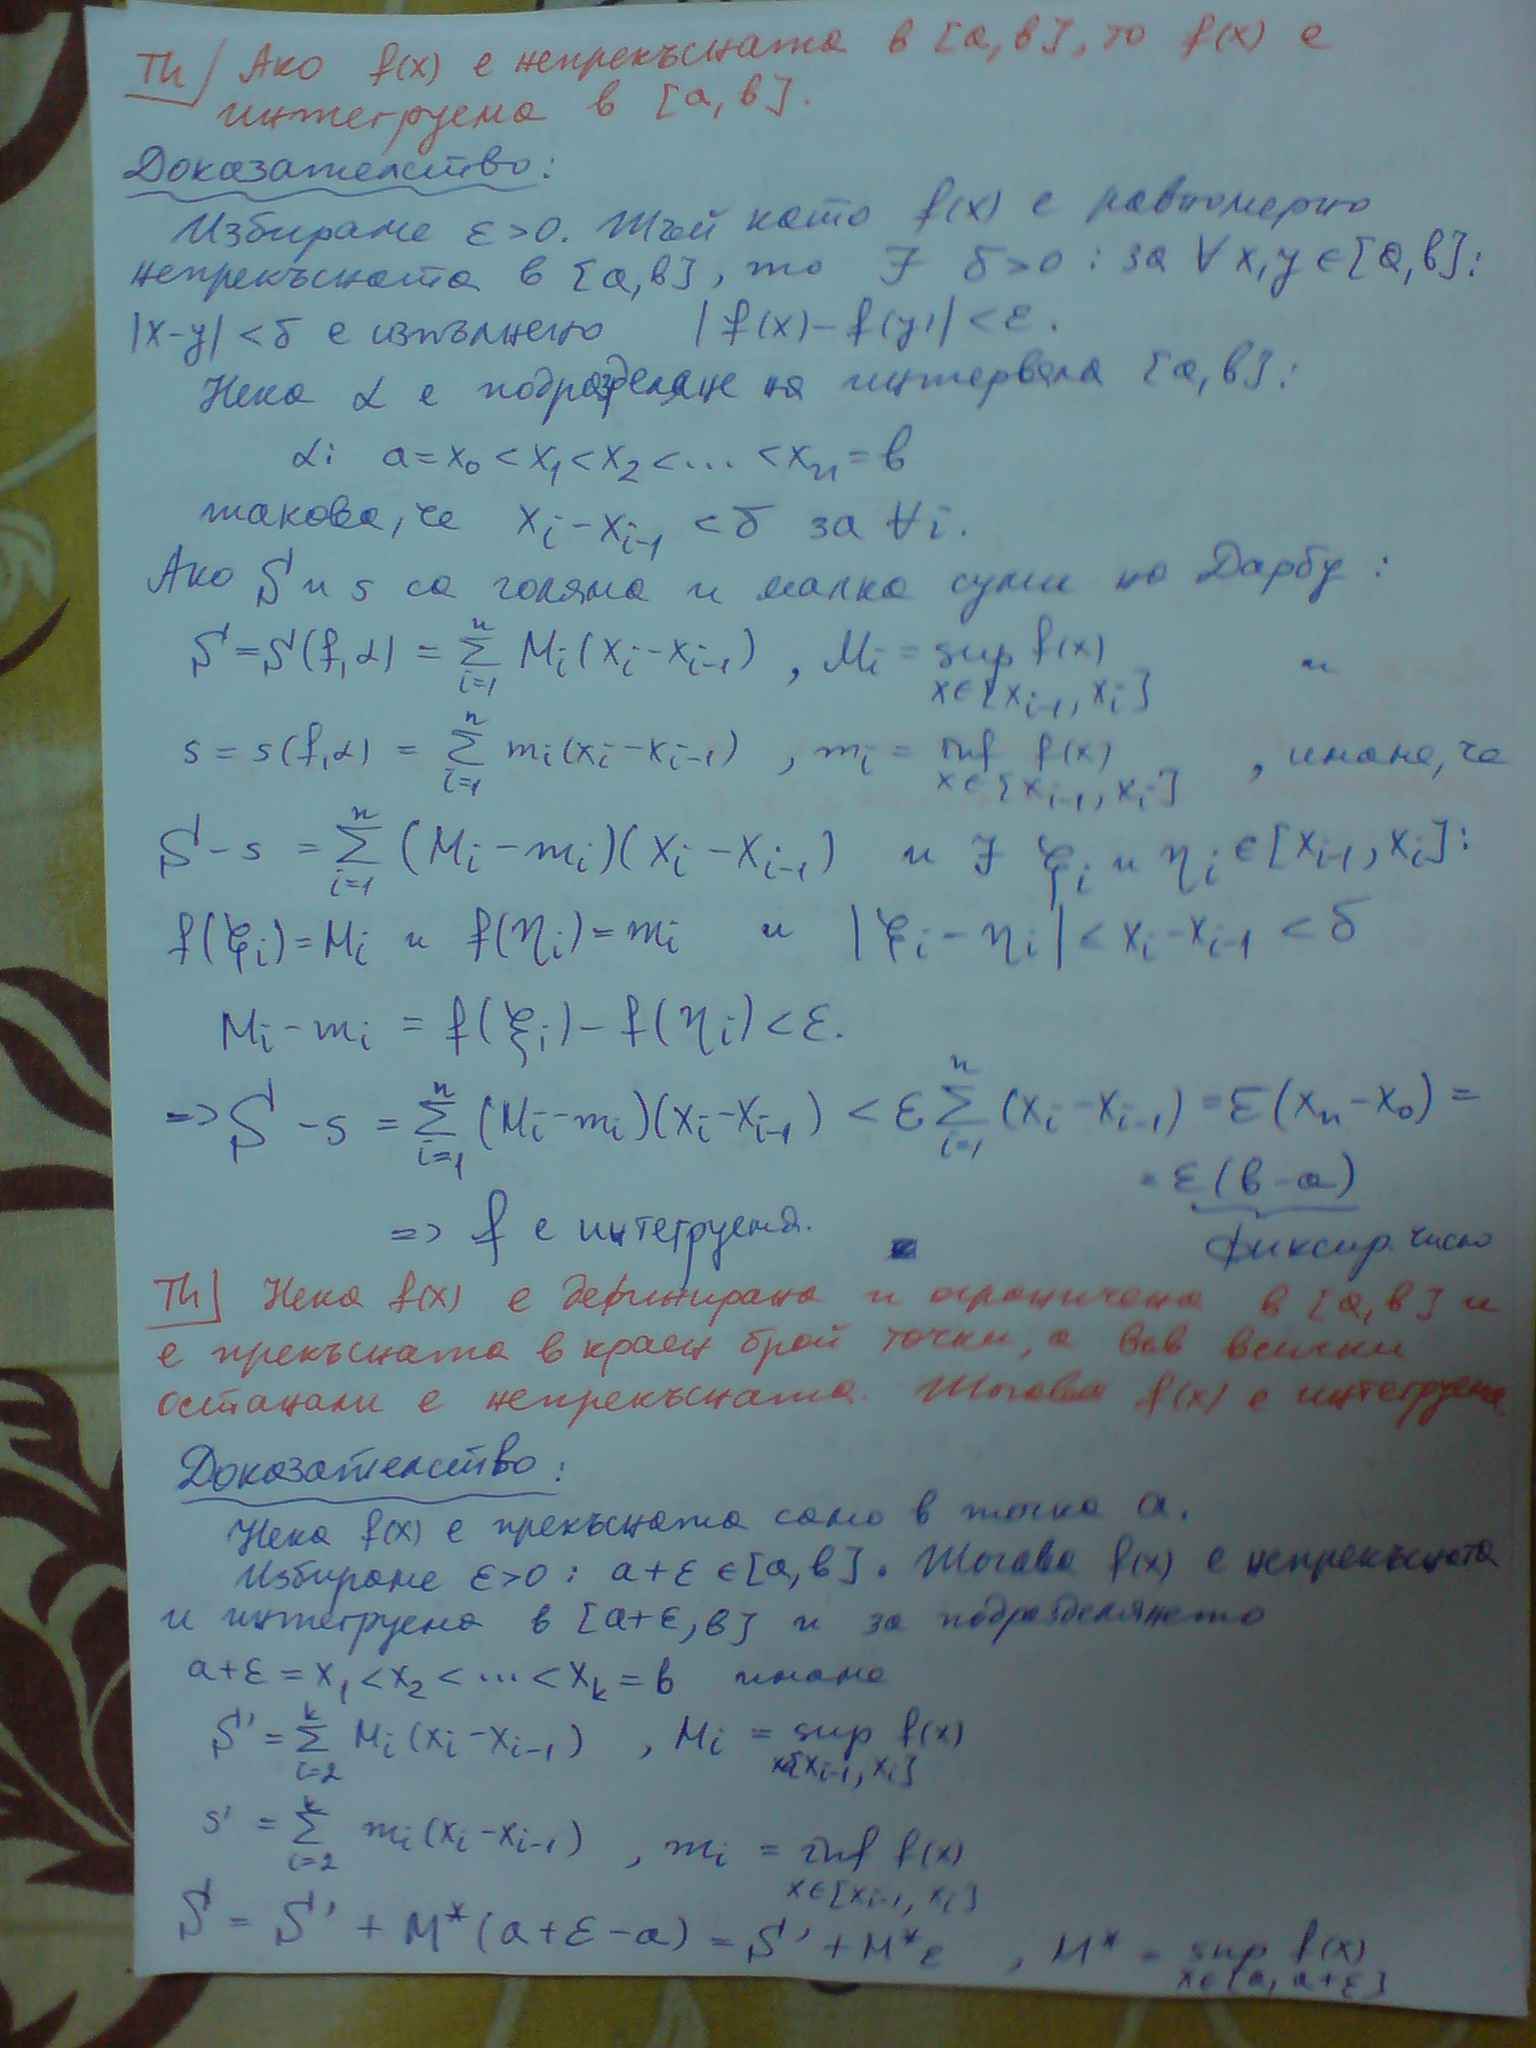 Th) Ако f(x) е непрекъсната в [a,b], то f(x) е
интегруема в [a,b].
Доказателство:
Избираме ε>0. Тъй като f(x) е равномерно
непрекъсната в [a,b], то ∃ δ>0 : за ∀x,y∈[a,b]:
|x-y|<δ е изпълнено |f(x)-f(y)|<ε.
Нека α е подразделяне на интервала [a,b]:
α: a=x₀<x₁<x₂<...<xₙ=b
такова, че xᵢ-xᵢ₋₁<δ за ∀i.
Ако S и s са голяма и малка суми на Дарбу:
S=S(f,α)=∑ᵢ₌₁ⁿ Mᵢ(xᵢ-xᵢ₋₁), Mᵢ = sup f(x) x∈[xᵢ₋₁,xᵢ] и
s=s(f,α)=∑ᵢ₌₁ⁿ mᵢ(xᵢ-xᵢ₋₁), mᵢ = inf f(x) x∈[xᵢ₋₁,xᵢ], имаме, че
S-s=∑ᵢ₌₁ⁿ (Mᵢ-mᵢ)(xᵢ-xᵢ₋₁) и ∃ ξᵢ и ηᵢ∈[xᵢ₋₁,xᵢ]:
f(ξᵢ)=Mᵢ и f(ηᵢ)=mᵢ и |ξᵢ-ηᵢ|<xᵢ-xᵢ₋₁<δ
Mᵢ-mᵢ=f(ξᵢ)-f(ηᵢ)<ε.
=> S-s=∑ᵢ₌₁ⁿ (Mᵢ-mᵢ)(xᵢ-xᵢ₋₁)<ε∑ᵢ₌₁ⁿ (xᵢ-xᵢ₋₁)=ε(xₙ-x₀)=
=ε(b-a)
=> f е интегруема. фиксир. число
Th) Нека f(x) е дефинирана и ограничена в [a,b] и
е прекъсната в краен брой точки, а във всички
останали е непрекъсната. Тогава f(x) е интегруема
Доказателство:
Нека f(x) е прекъсната само в точка a.
Избираме ε>0: a+ε∈[a,b]. Тогава f(x) е непрекъсната
и интегруема в [a+ε,b] и за подразделянето
a+ε=x₁<x₂<...<xₖ=b имаме
S'=∑ᵢ₌₂ᵏ Mᵢ(xᵢ-xᵢ₋₁), Mᵢ = sup f(x) x∈[xᵢ₋₁,xᵢ]
s'=∑ᵢ₌₂ᵏ mᵢ(xᵢ-xᵢ₋₁), mᵢ = inf f(x) x∈[xᵢ₋₁,xᵢ]
S=S'+M*(a+ε-a)=S'+M*ε, M* = sup f(x) x∈[a,a+ε]